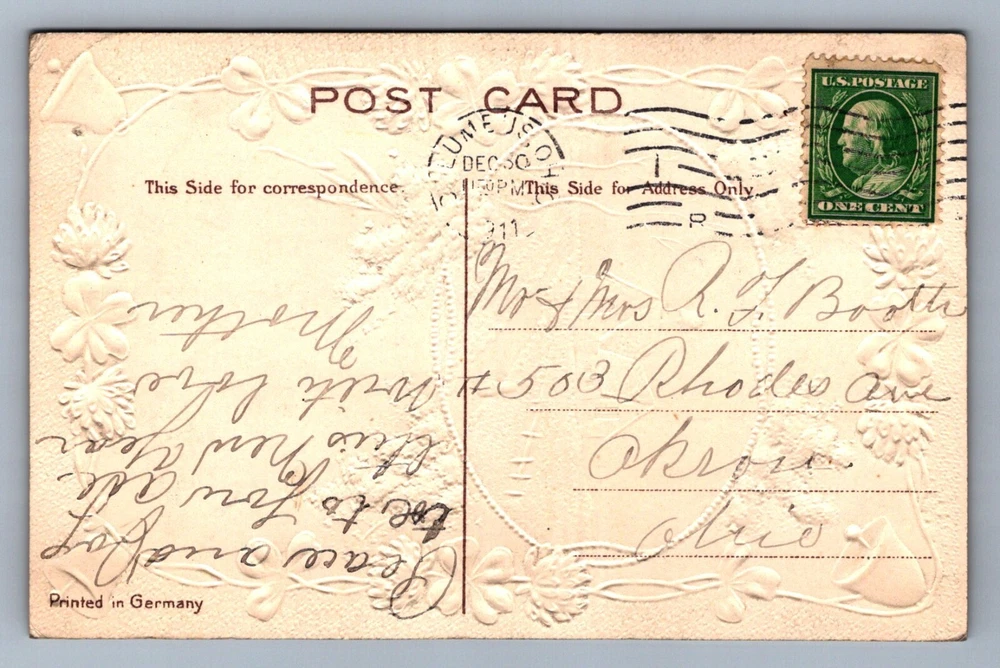 POST CARD
This Side for correspondence.
This Side for Address Only
U.S. POSTAGE
ONE CENT
COLUMBUS, OHIO
DEC 30
PM
1911
1
R
Mr & Mrs R. F. Booth
# 503 Rhodes ave
Akron
Ohio
Peace and Joy
be to you all
this New Year
with love
Mother
Printed in Germany